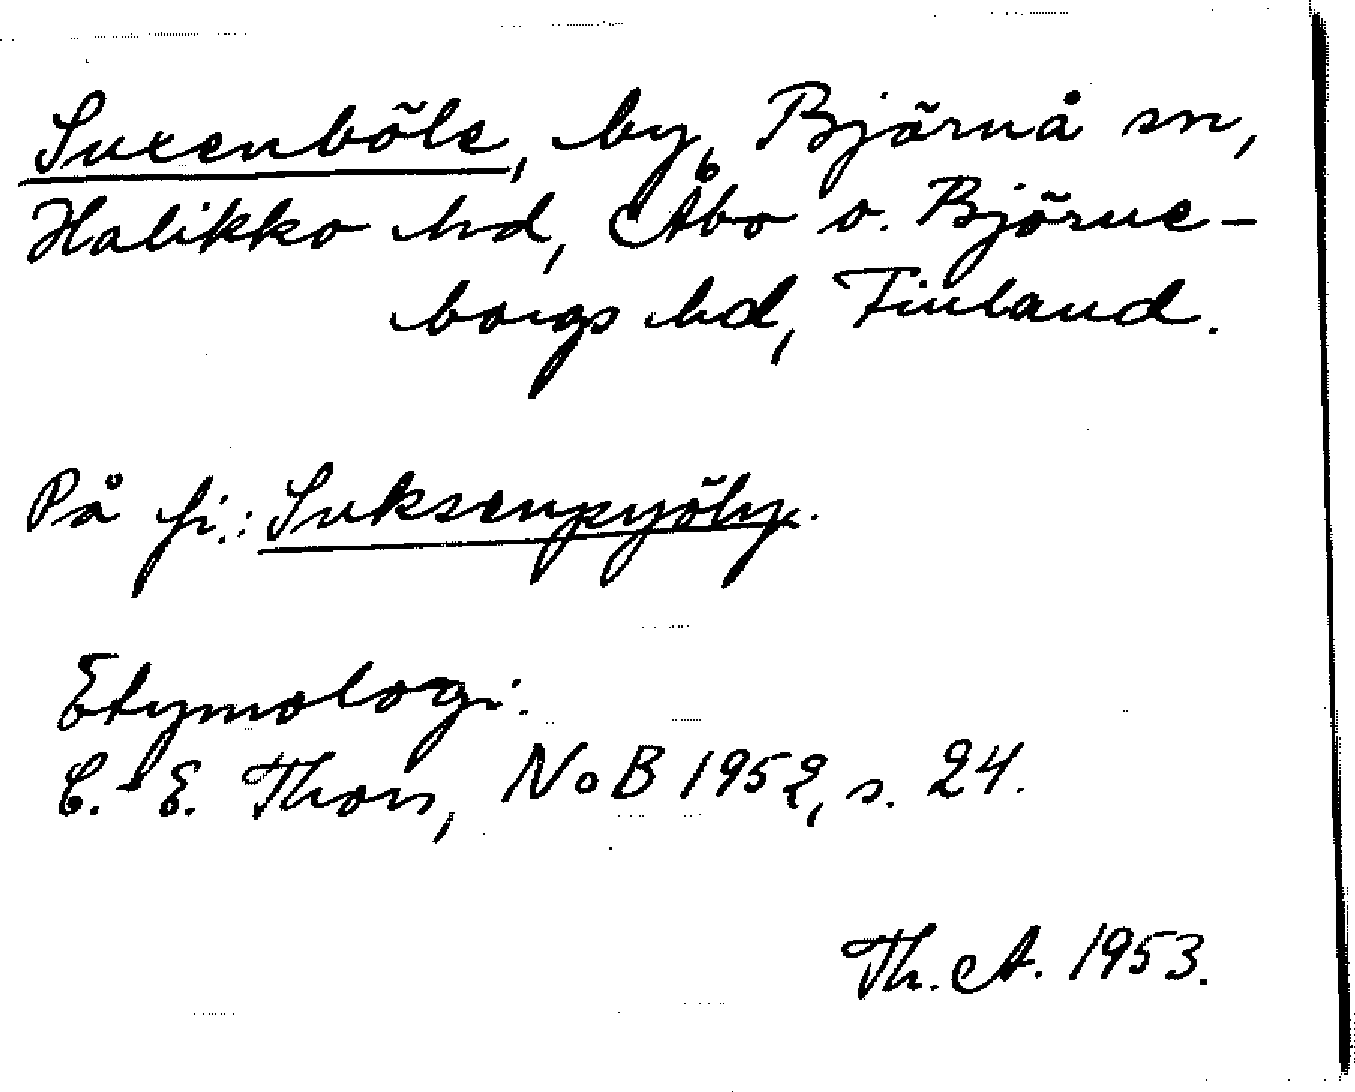 Suxenböle, by, Bjärnå sn,
Halikko hd, Åbo o. Björne-
borgs hd, Finland.
På fi.: Suksenpyöly.
Etymologi:
C.-E. Thors, NoB 1952, s. 24.
Th. A. 1953.